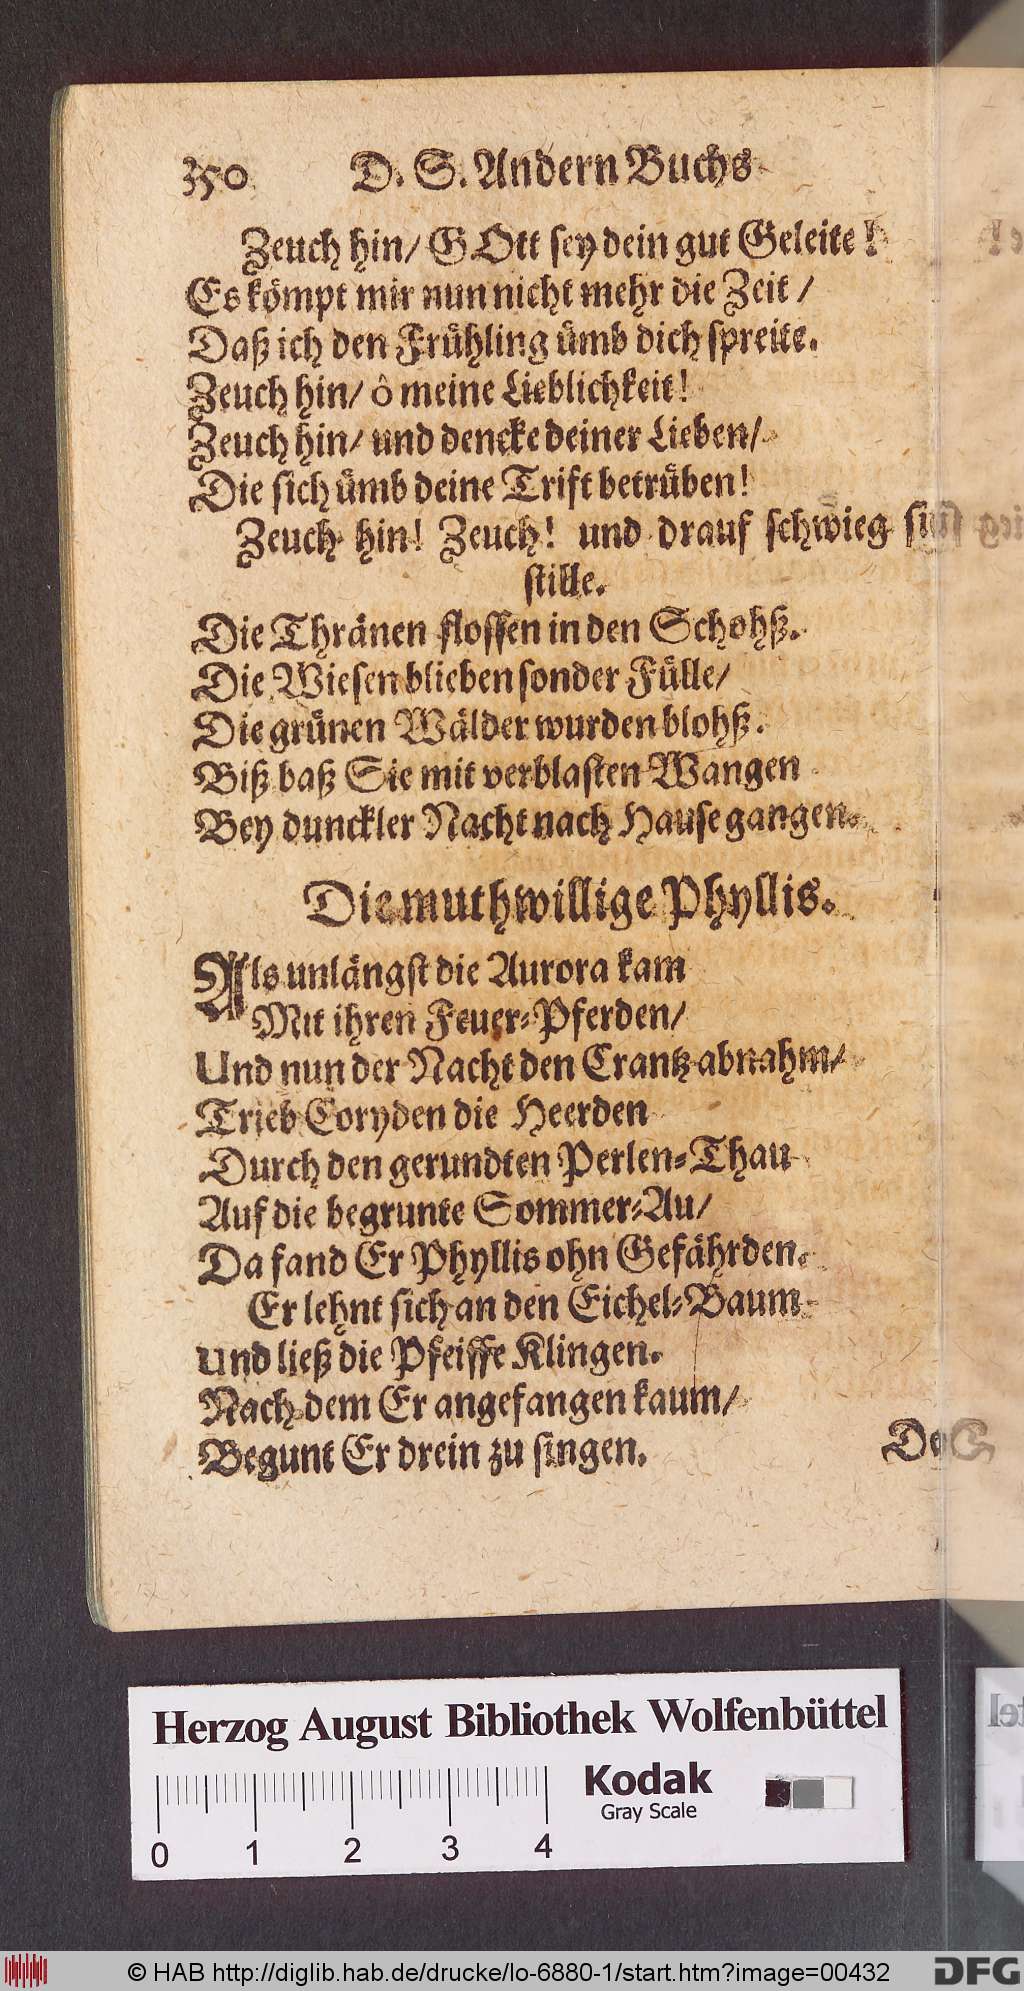 350 D. S. Andern Buchs
Zeuch hin/ GOtt sey dein gut Geleite!
Es kömpt mir nun nicht mehr die Zeit /
Daß ich den Frühling ümb dich spreite.
Zeuch hin/ ô meine Lieblichkeit!
Zeuch hin/ und dencke deiner Lieben/
Die sich ümb deine Trift betrüben!
Zeuch hin! Zeuch! und drauf schwieg sie
stille.
Die Thränen flossen in den Schohß.
Die Wiesen blieben sonder Fülle/
Die grünen Wälder wurden blohß.
Biß baß Sie mit verblasten Wangen
Bey dunckler Nacht nach Hause gangen.
Die muthwillige Phyllis.
Als unlängst die Aurora kam
Mit ihren Feuer-Pferden/
Und nun der Nacht den Crantz abnahm/
Trieb Coryden die Heerden
Durch den gerundten Perlen-Thau
Auf die begrunte Sommer-Au/
Da fand Er Phyllis ohn Gefährden.
Er lehnt sich an den Eichel-Baum
Und ließ die Pfeiffe Klingen.
Nach dem Er angefangen kaum/
Begunt Er drein zu singen.
Herzog August Bibliothek Wolfenbüttel
Kodak
Gray Scale
0 1 2 3 4
© HAB http://diglib.hab.de/drucke/lo-6880-1/start.htm?image=00432
DFG